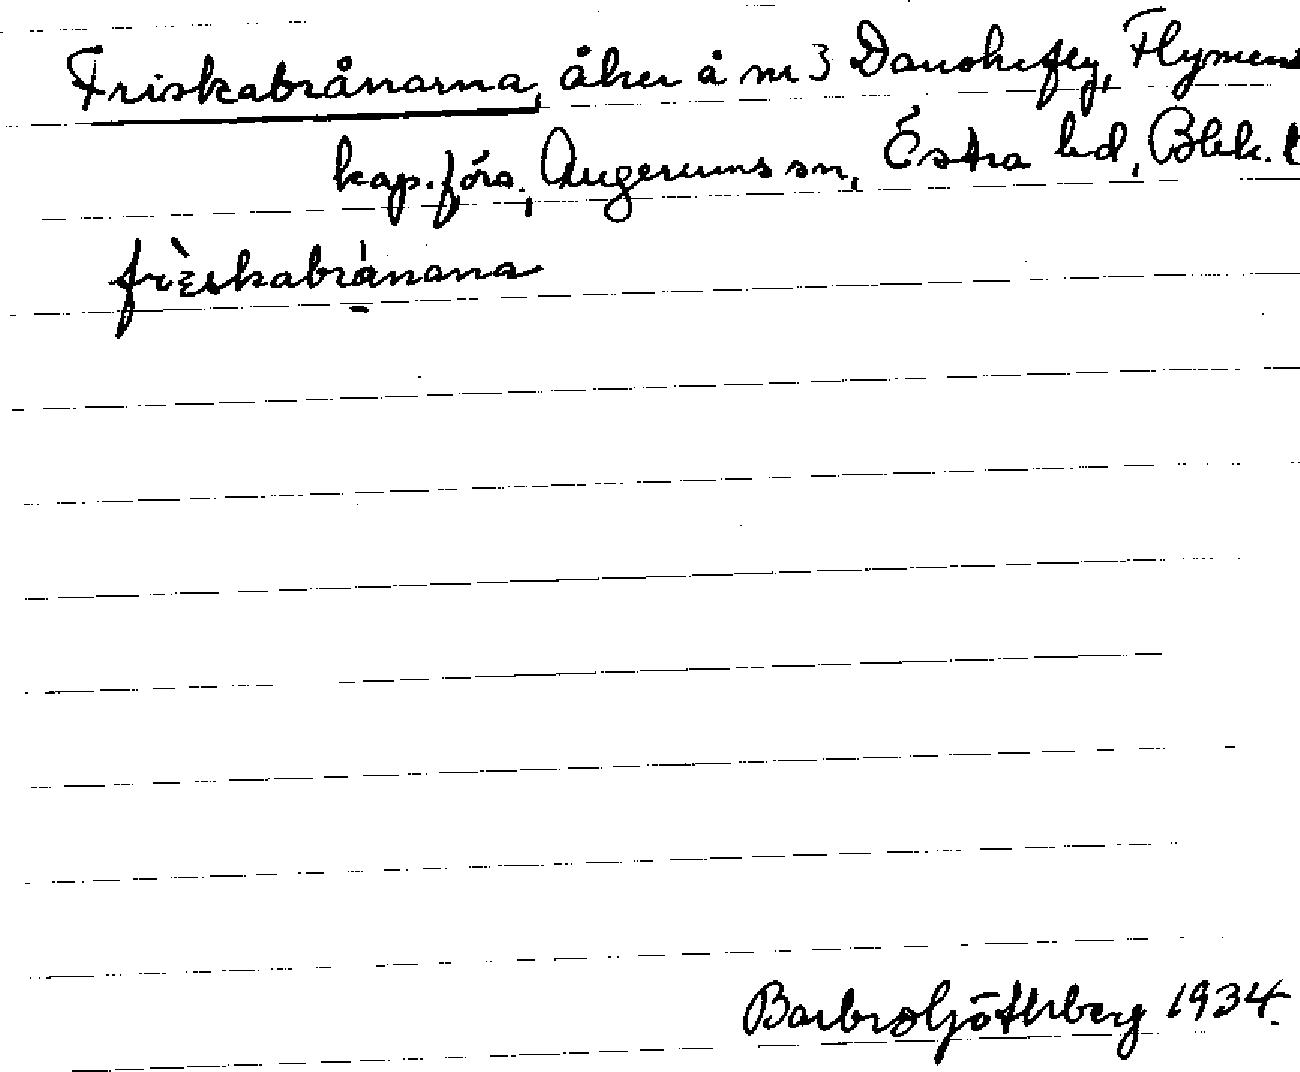 Friskabrånarna, åker å nr 3 Danskefly, Flymens
kap.förs., Augerums sn, Östra hd, Blek. l
frìskabrånana
Barbro Götherberg 1934.